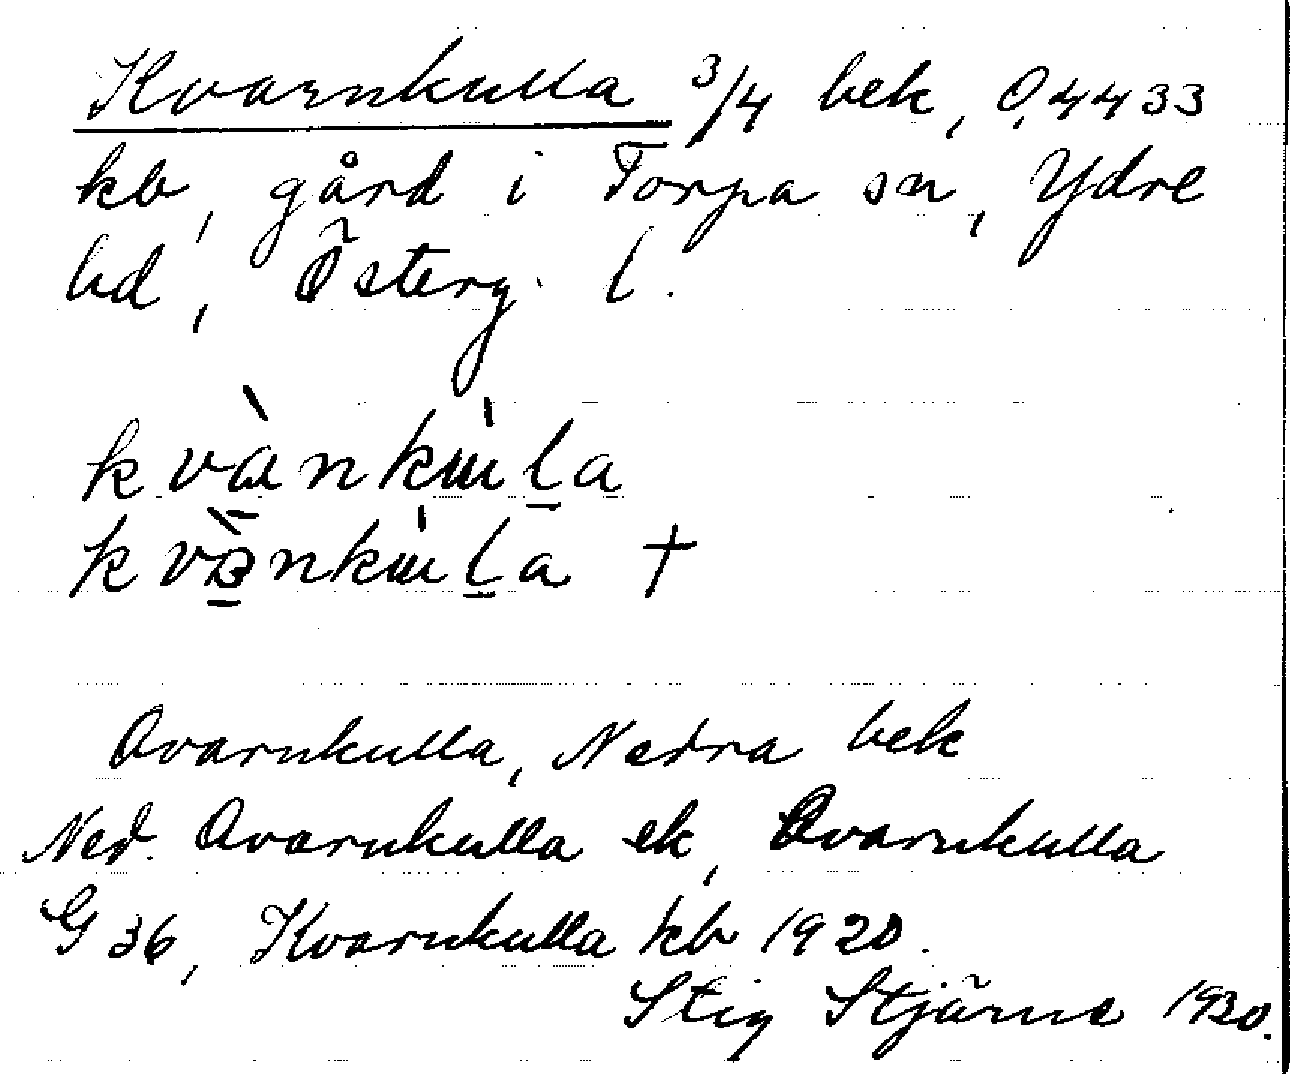 Kvarnkulla 3/4 bek, 0,4433
kb, gård i Torpa sn, Ydre
hd, Österg. l.
kvànkɯ̍l̠a
kvɔ̠̀nkɯ̍l̠a †
Qvarnkulla, Nedra bek
Ned. Qvarnkulla ek, Qvarnkulla
G 36, Kvarnkulla kb 1920.
Stig Stjärne 1930.